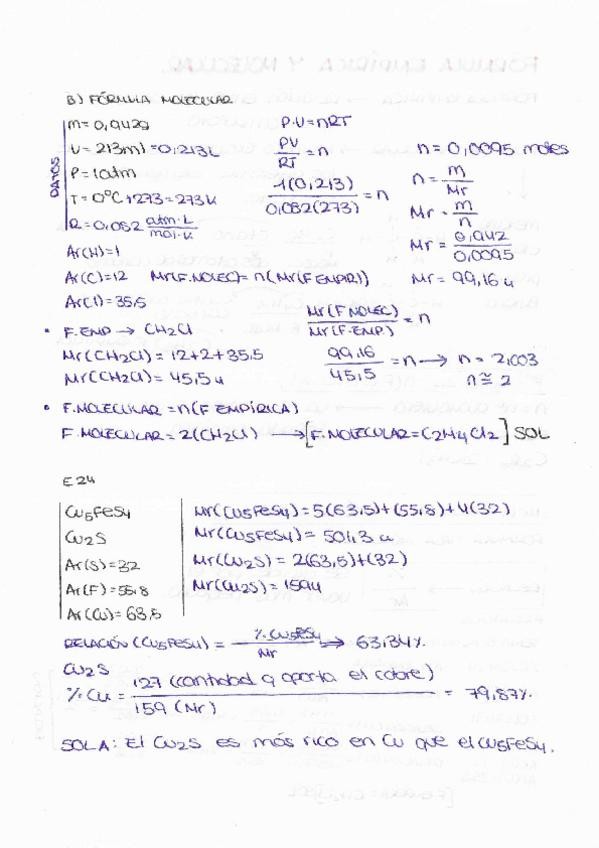 B) FÓRMULA MOLECULAR
DATOS
m = 0,942g
V = 213ml = 0,213L
P = 1 atm
T = 0°C + 273 = 273 K
R = 0,082 atm·L / mol·K
Ar(H) = 1
Ar(C) = 12
Ar(Cl) = 35,5
P·V = nRT
PV / RT = n
1(0,213) / 0,082(273) = n
n = 0,0095 moles
n = m / Mr
Mr = m / n
Mr = 0,942 / 0,0095
Mr = 99,16 u
Mr(F.MOLEC) = n(Mr(F EMPR))
Mr(F MOLEC) / Mr(F.EMP.) = n
• F.EMP → CH2Cl
Mr(CH2Cl) = 12+2+35,5
Mr(CH2Cl) = 45,5 u
99,16 / 45,5 = n → n = 2,003
n ≅ 2
• F.MOLECULAR = n(F EMPÍRICA)
F.MOLECULAR = 2(CH2Cl) → [F.MOLECULAR = C2H4Cl2] SOL
E24
Cu5FeS4
Cu2S
Ar(S) = 32
Ar(F) = 55,8
Ar(Cu) = 63,5
Mr(Cu5FeS4) = 5(63,5)+(55,8)+4(32)
Mr(Cu5FeS4) = 501,3 u
Mr(Cu2S) = 2(63,5)+(32)
Mr(Cu2S) = 159u
RELACIÓN (Cu5FeS4) = %Cu5FeS4 / Mr → 63,34%
Cu2S
% Cu = 127 (cantidad q aporta el cobre) / 159 (Mr) = 79,87%
SOLA: El Cu2S es más rico en Cu que el Cu5FeS4.